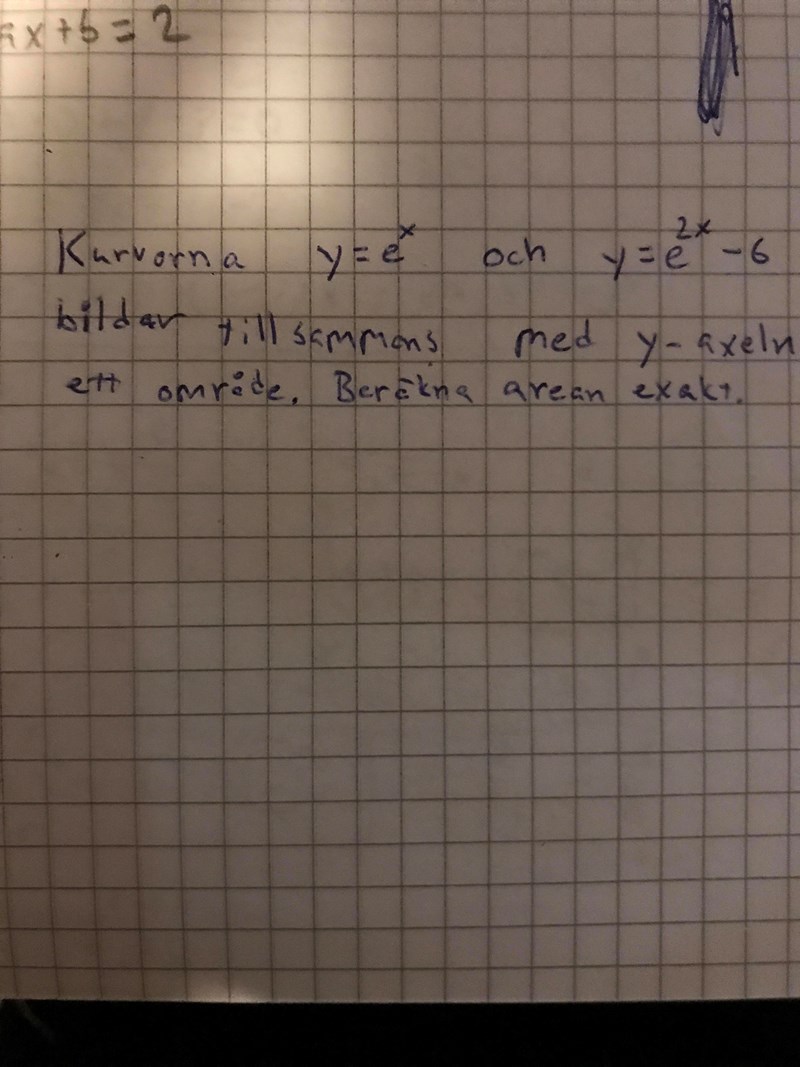 ax+b=2
Kurvorna y=e^x och y=e^2x-6
bildar tillsammans med y-axeln
ett område. Beräkna arean exakt.